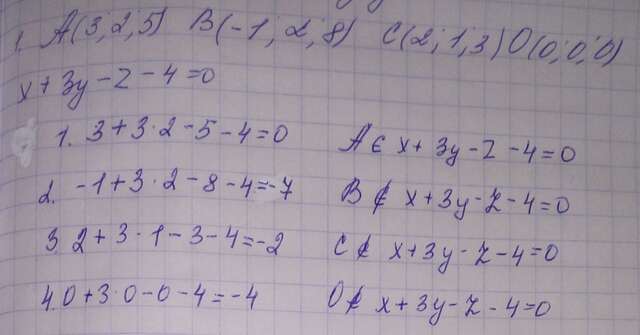 1. A(3,2,5) B(-1,2,8) C(2,1,3) O(0,0,0)
x + 3y - z - 4 = 0
1. 3 + 3·2 - 5 - 4 = 0 A ∈ x + 3y - z - 4 = 0
2. -1 + 3·2 - 8 - 4 = -7 B ∉ x + 3y - z - 4 = 0
3. 2 + 3·1 - 3 - 4 = -2 C ∉ x + 3y - z - 4 = 0
4. 0 + 3·0 - 0 - 4 = -4 O ∉ x + 3y - z - 4 = 0